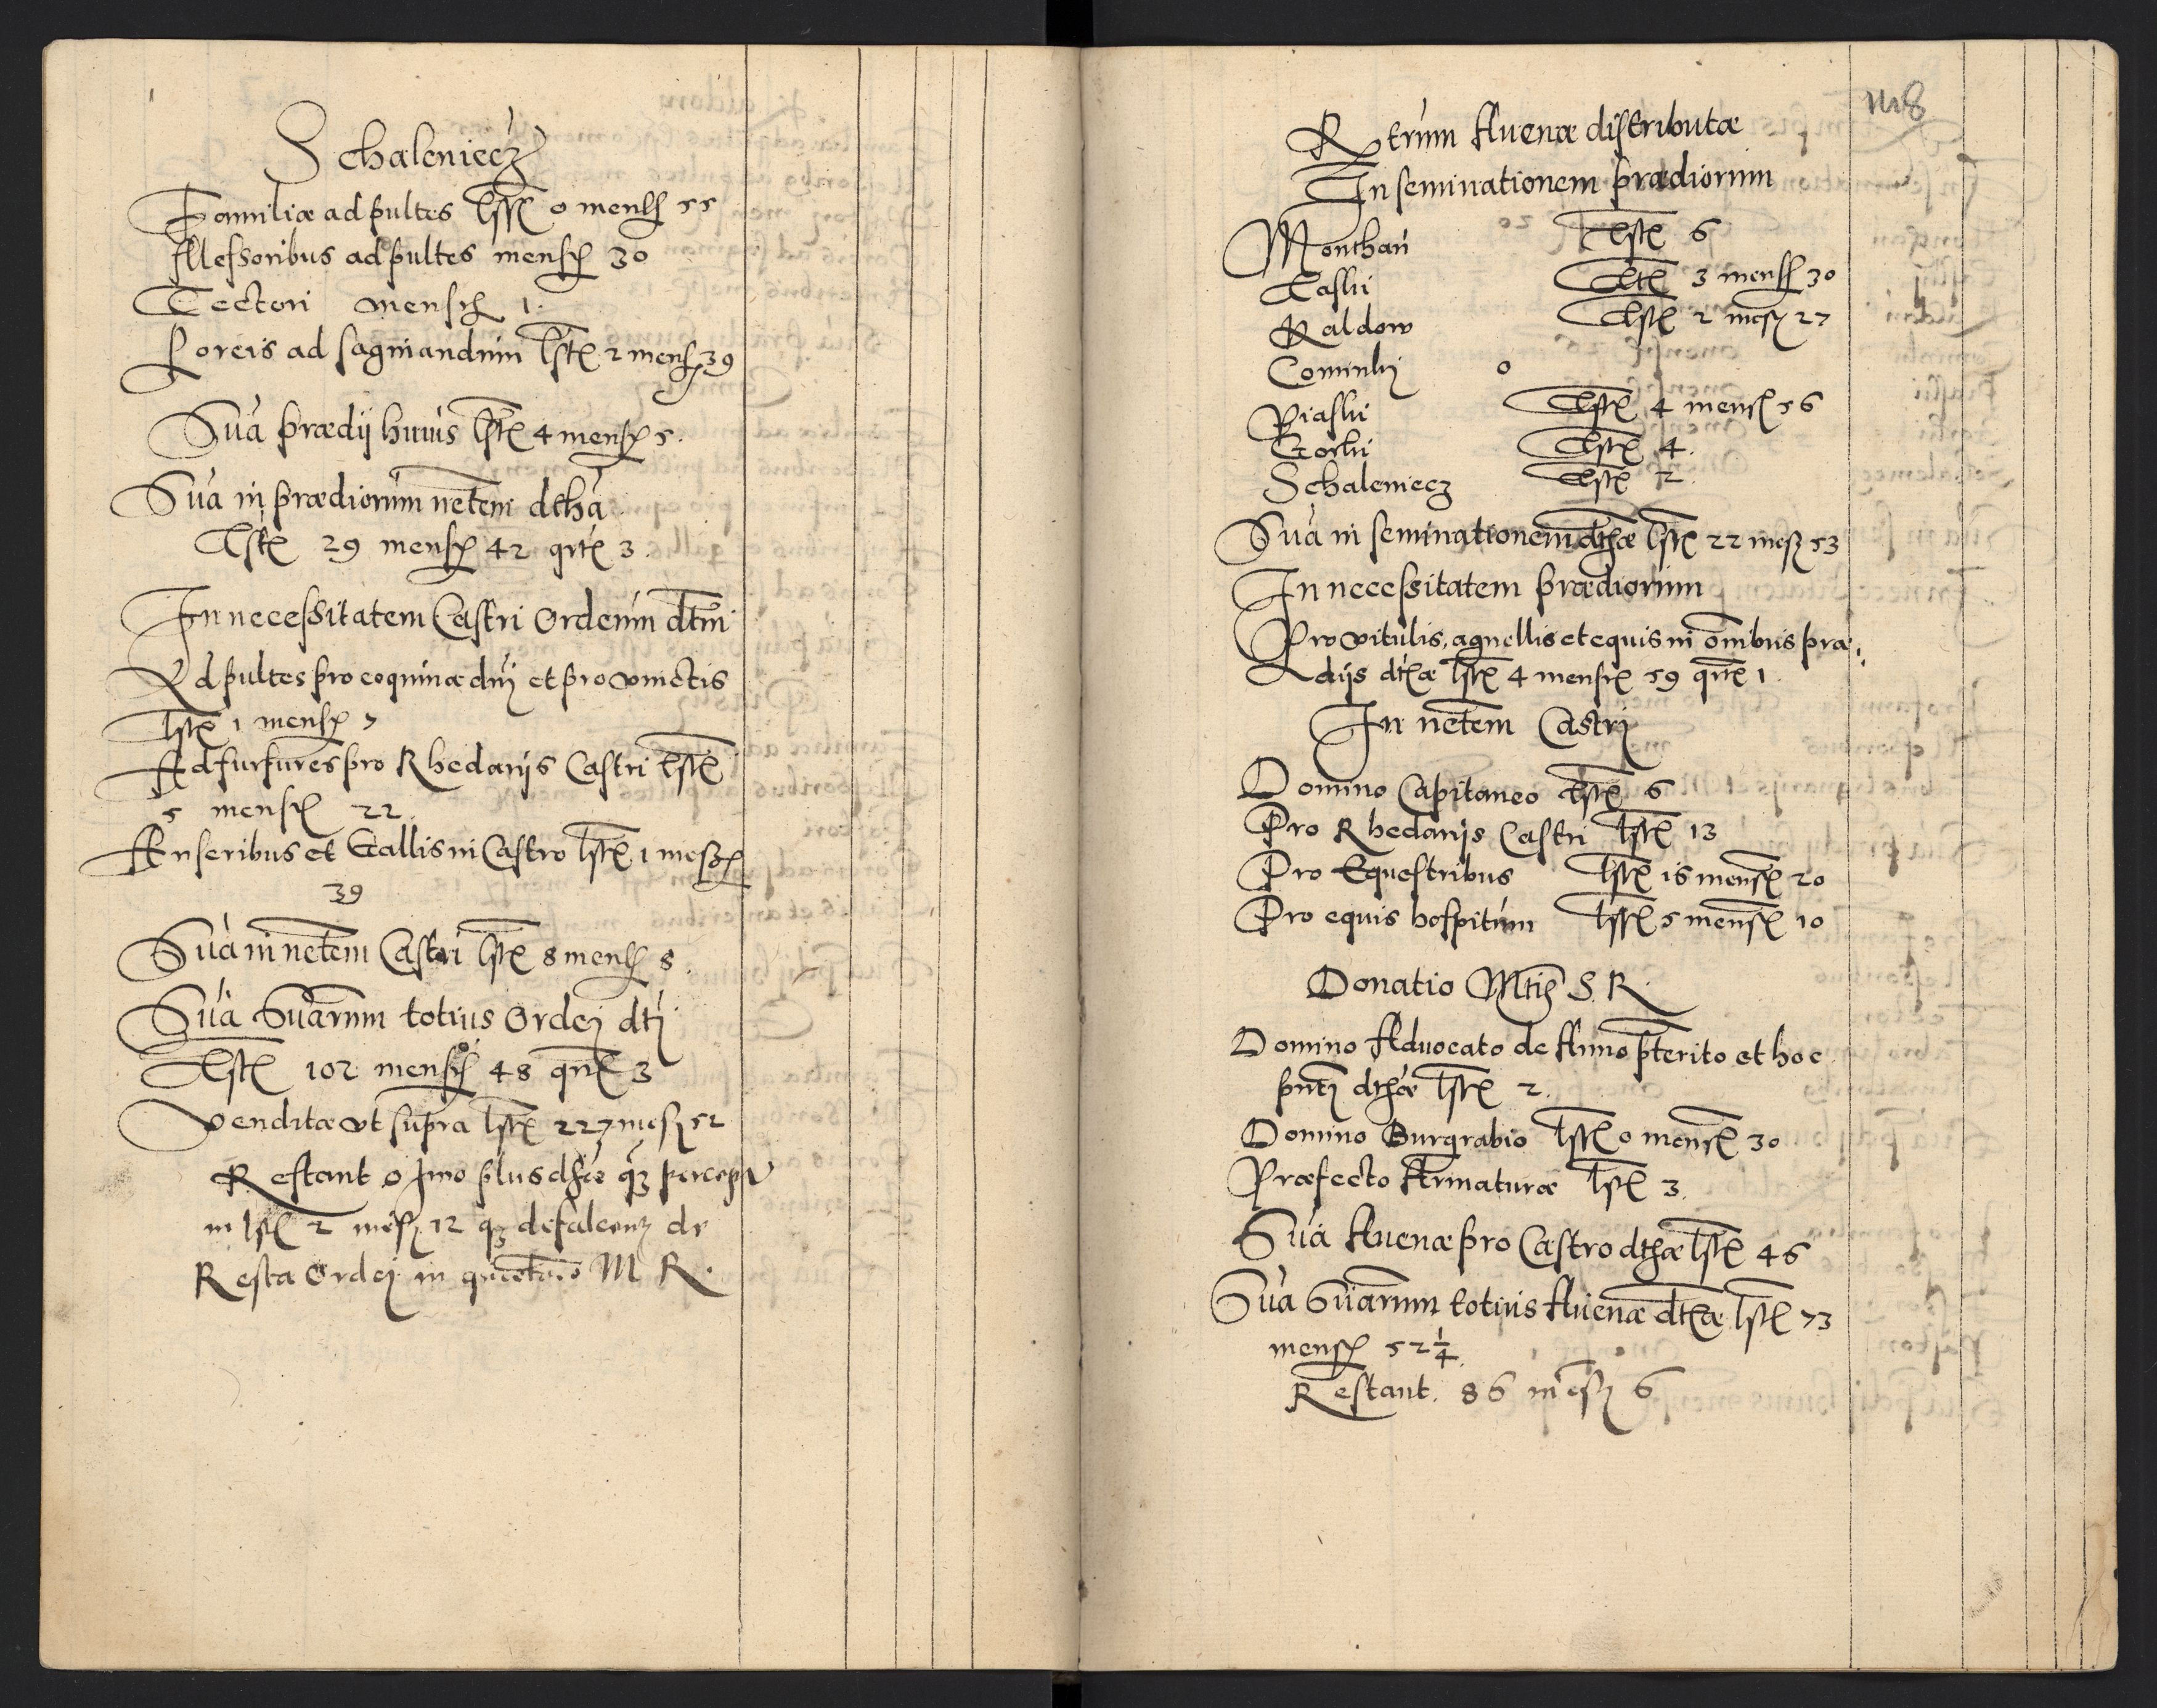 Schaleniecz
Familiæ ad pultes lstȩ 0 mensȩ 55
Messoribus ad pultes mensȩ 30
Tectori mensȩ 1.
Porcis ad saginandum lstȩ 2 mensȩ 39
Sua prædij huius lstȩ 4 mensȩ 5.
Sua in prædiorum netem dtha
lstȩ 29 mensȩ 42 qrtȩ 3.
In necessitatem Castri Ordeum dtm
Ad pultes pro coquina dni et pro vinctis
lstȩ 1 mensȩ 7
Ad furfures pro Rhedarijs Castri lstȩ
5 mensȩ 22.
Anseribus et Gallis in Castro lstȩ 1 mesȩ
39
Sua in netem Castri lstȩ 8 mensȩ 8.
Sua Suarum totius Ordei dti
lstȩ 102 mensȩ 48 qrtȩ 3
Venditæ vt supra lstȩ 227 mesȩ 52
Restant 0 Imo plus dthæ qȝ
in lstȩ 2 mesȩ 12 qȝ de
Resta Ordei in M R.
118
Rtrum Auenæ distributæ
In seminationem prædiorum
Monthaú lstȩ 6
Laslii lstȩ 3 mensȩ 30
Kaldow lstȩ 2 mesȩ 27
Cominki 0
Piaslii lstȩ 4 mensȩ 56
Gorlii lstȩ 4.
Schaleniecz lstȩ 2.
Sua in seminationem dthæ lstȩ 22 mesȩ 53
In necessitatem prædiorum
Pro vitulis, agnellis et equis in omibus præ,
dijs dtȩæ lstȩ 4 mensȩ 59 qrtȩ 1.
In netem Castri
Domino Capitaneo lstȩ 6
Pro Rhedarijs Castri lstȩ 13
Pro Equestribus lstȩ 16 mensȩ 20
Pro equis hospitum lstȩ 5 mensȩ 10
Donatio Mtis S. R.
Domino Aduocato de Anno pterito et hoc
pnti dthæ lstȩ 2.
Domino Burgrabio lstȩ 0 mensȩ 30
Præfecto Armaturæ lstȩ 3.
Sua Auenæ pro Castro dthæ lstȩ 46
Sua Suarum totius Auenæ dtȩæ lstȩ 73
mensȩ 52 1/4.
Restant. 86 mesȩ 6